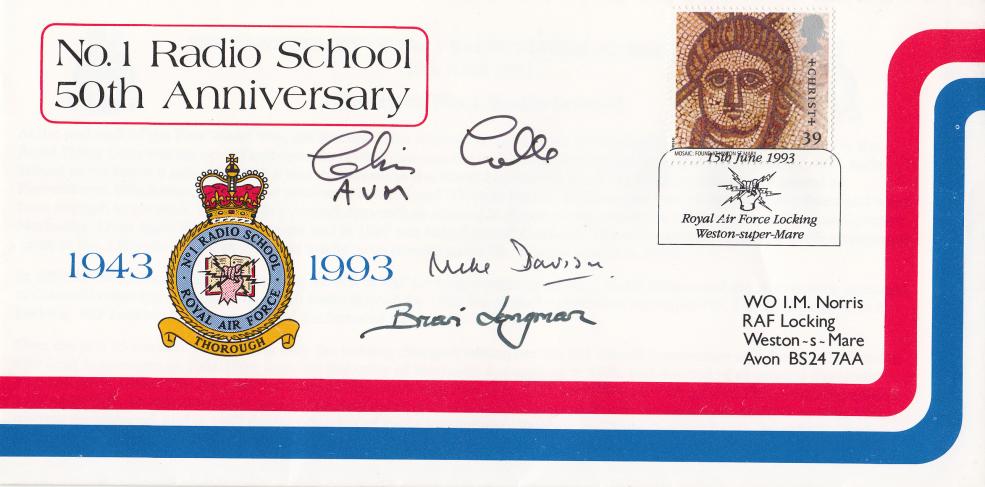 No. 1 Radio School
50th Anniversary
+CHRIST+
39
MOSAIC: FOUND AT HINTON ST MARY
15th June 1993
Royal Air Force Locking
Weston-super-Mare
Colin
AVM
1943
No 1 RADIO SCHOOL
ROYAL AIR FORCE
THOROUGH
1993
Mike Davison
Brian Longman
WO I.M. Norris
RAF Locking
Weston~s~Mare
Avon BS24 7AA